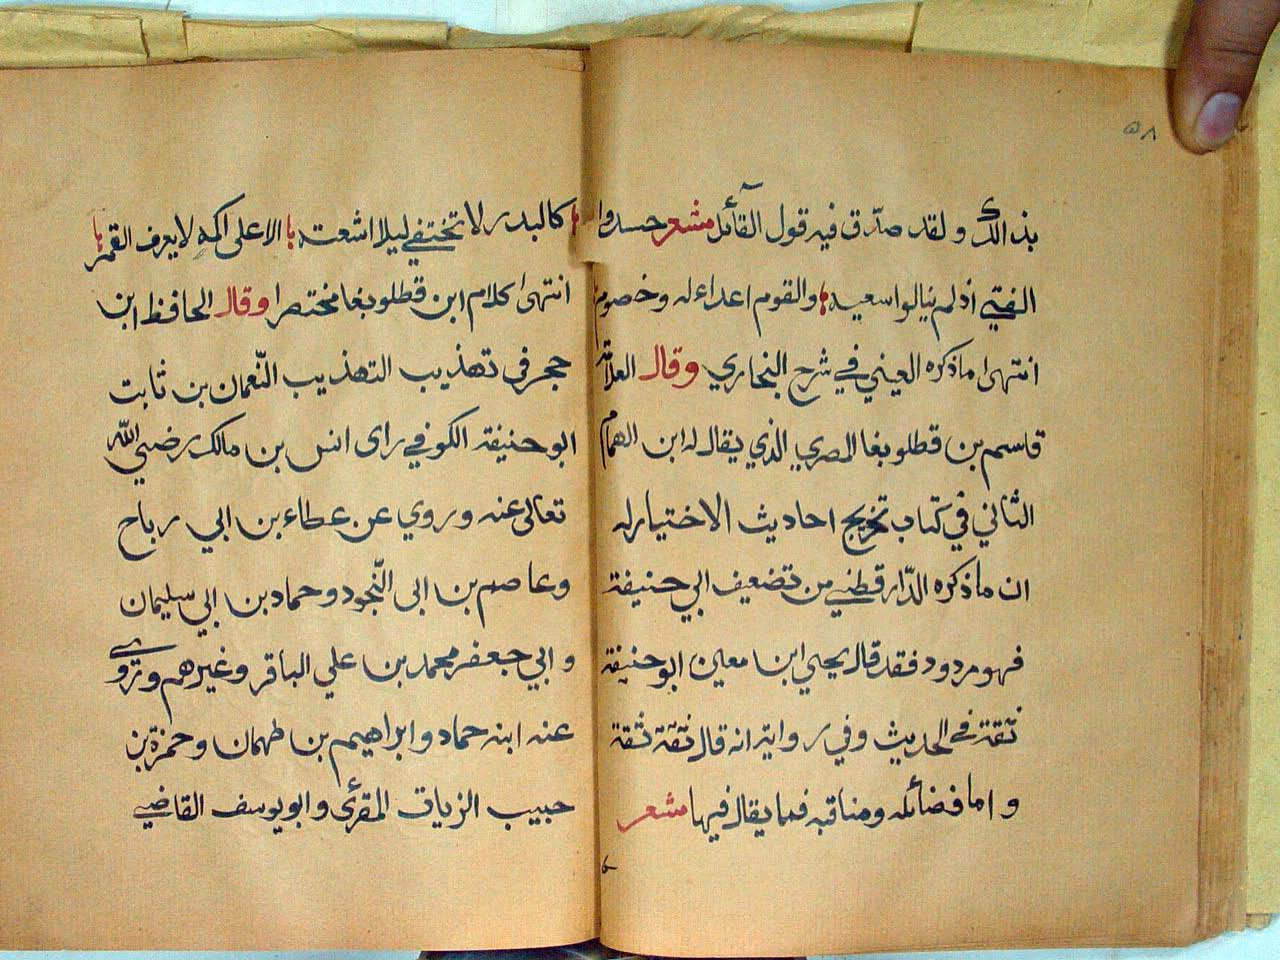 ٥٨
بذالك ولقد صدق فيه قول القائل شعر حسدوا
الفتى اذ لم ينالوا سعيه والقوم اعداء له وخصوم
انتهى ما ذكره العيني في شرح البخاري وقال العلامة
قاسم بن قطلوبغا المصري الذي يقال له ابن الهمام
الثاني في كتاب تخريج احاديث الاختيار له
ان ما ذكره الدّارقطني من تضعيف ابي حنيفة
فهو مردود فقد قال يحيي ابن معين ابو حنيفة
ثقة في الحديث وفي رواية انه قال ثقة ثقة
واما فضائله ومناقبه فما يقال فيها شعر
كالبدر لا تختفي ليلا اشعته الا على اكمه لا يعرف القمر
انتهى كلام ابن قطلوبغا مختصرا وقال الحافظ ابن
حجر في تهذيب التهذيب النّعمان بن ثابت
ابو حنيفة الكوفي راى انس بن مالك رضي الله
تعالى عنه وروي عن عطاء بن ابي رباح
وعاصم بن ابى النّجود وحماد بن ابي سليمان
وابي جعفر محمد بن علي الباقر وغيرهم وتروى
عنه ابنه حماد وابراهيم بن طهمان وحمزة بن
حبيب الزيات المقرئ وابو يوسف القاضي